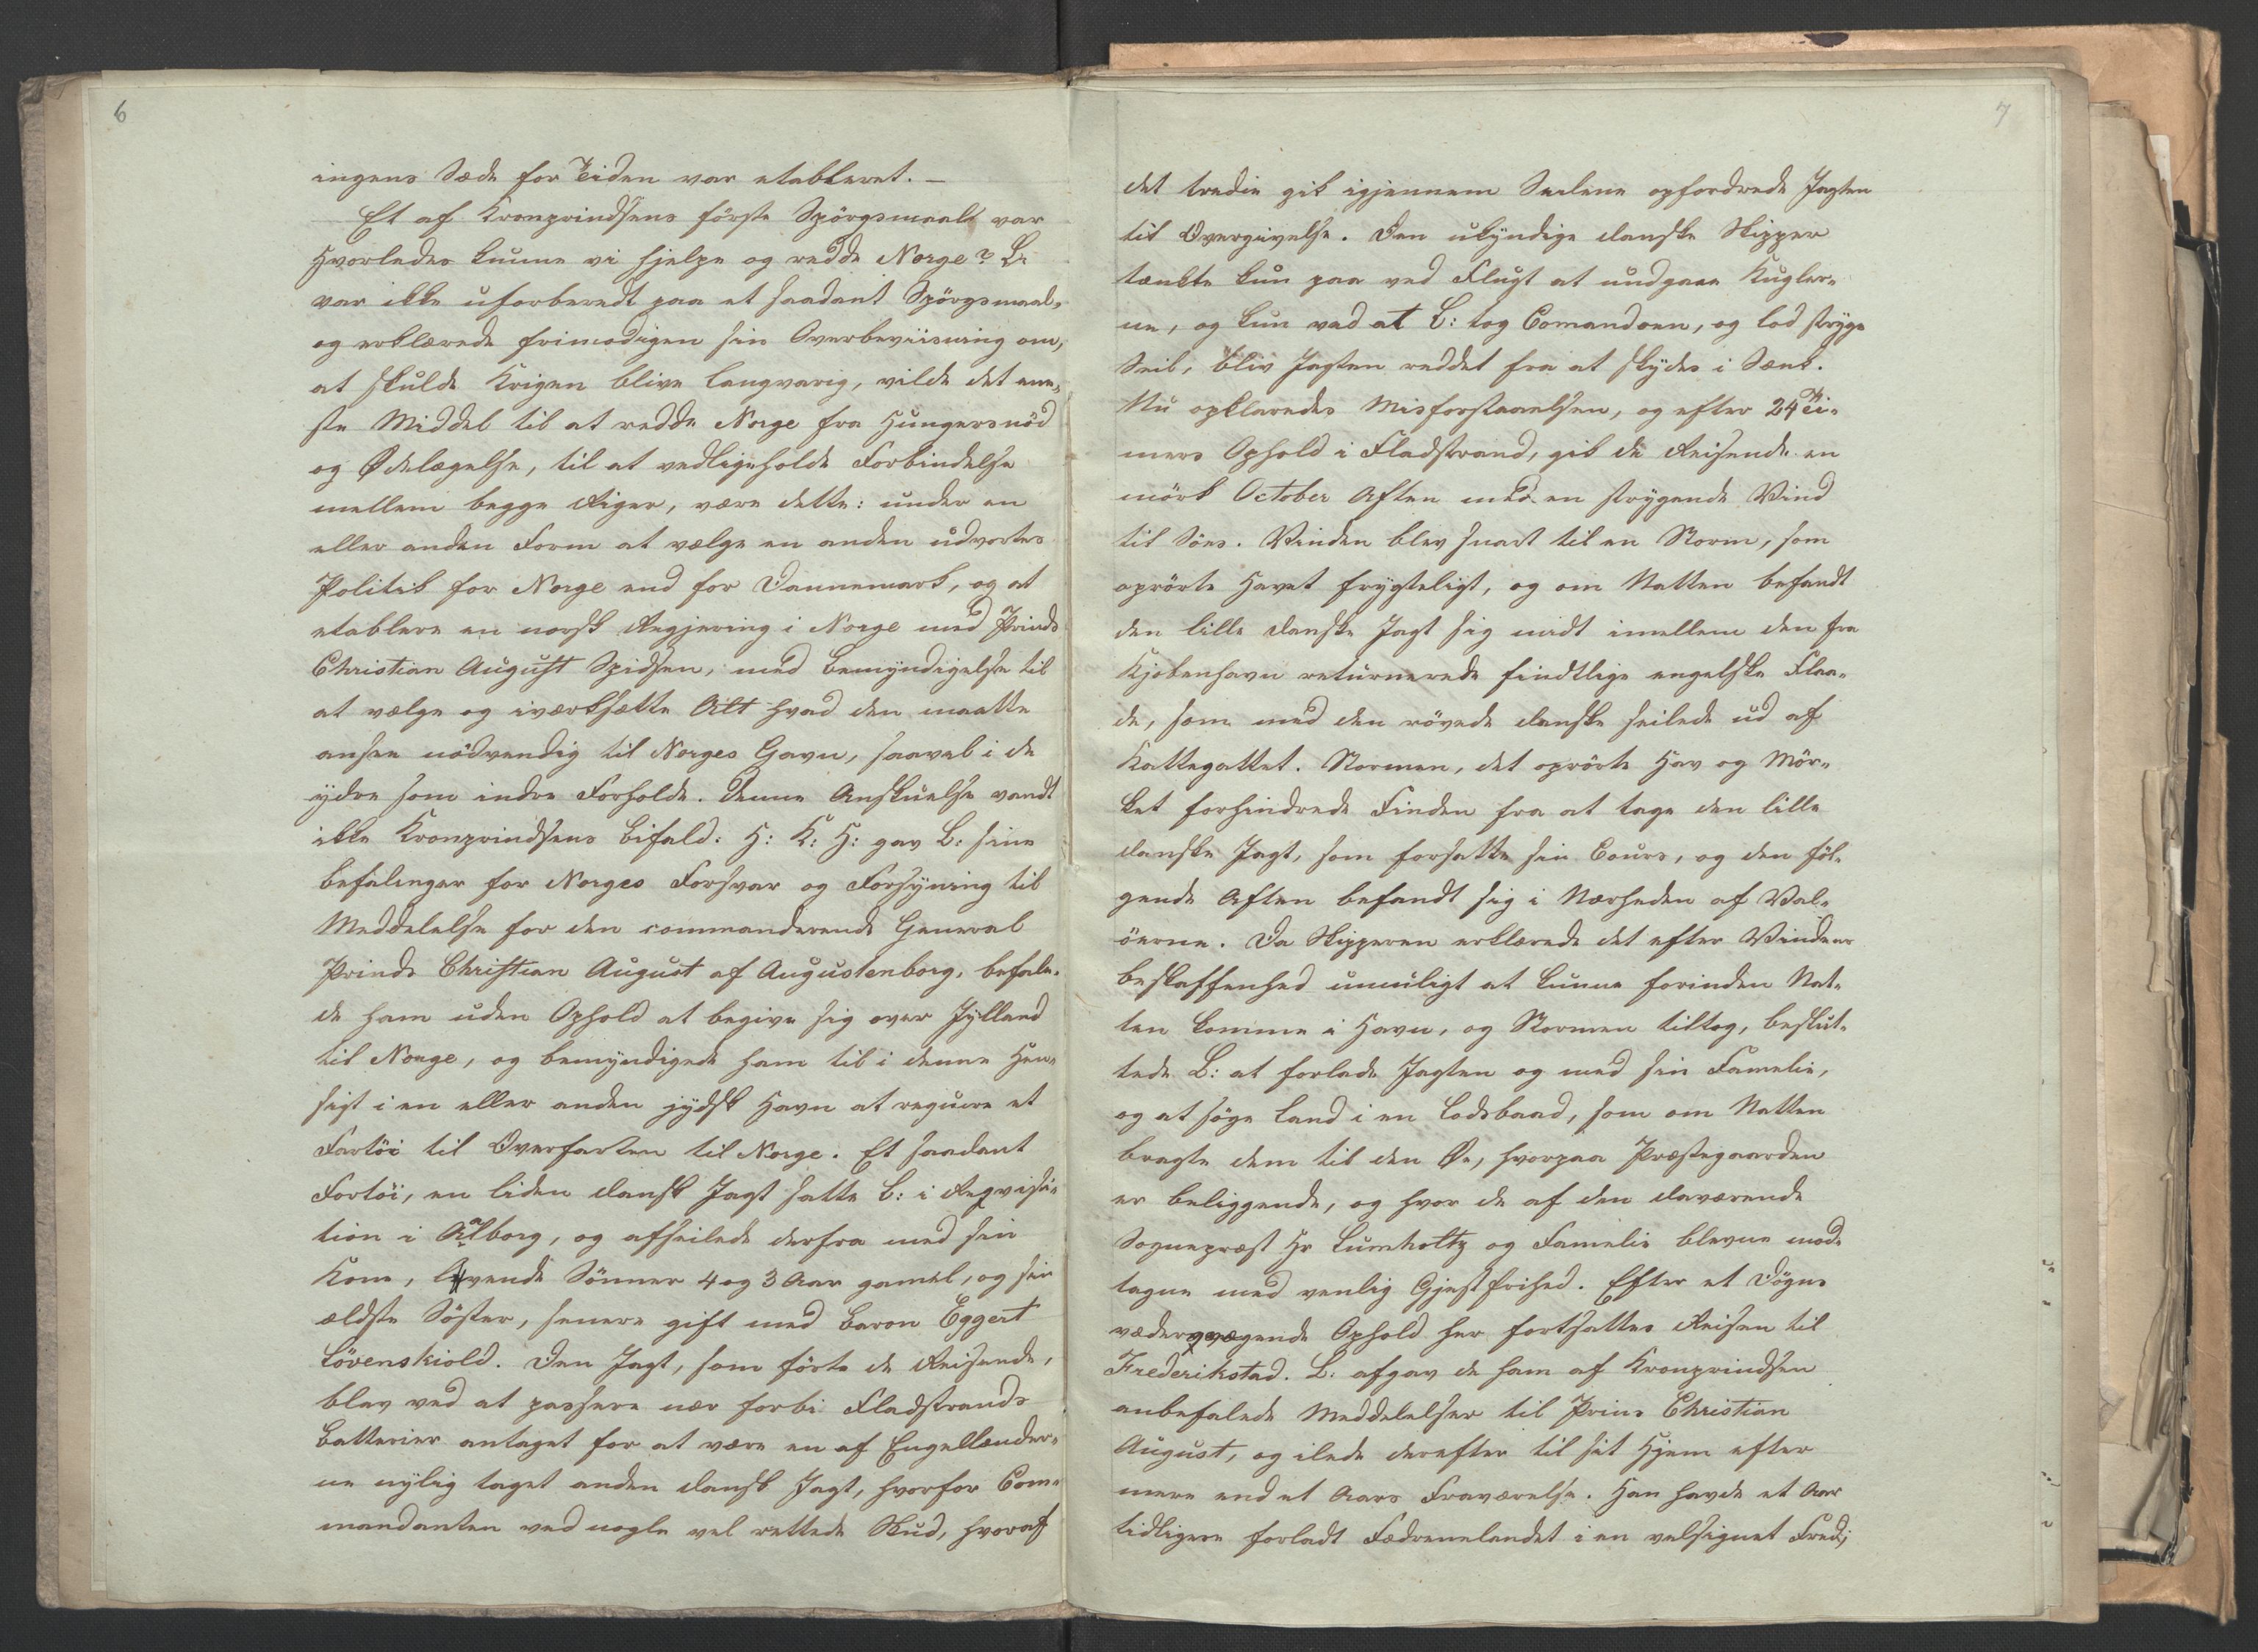 6
ingens Sæde for Tiden var etableret. —
Et af Kronprindsens förste Spörgsmaal var
Hvorledes kunne vi hjelpe og redde Norge? L:
var ikke uforberedt paa et saadant Spörgsmaal,
og erklærede frimodigen sin Overbeviisning om,
at skulde Krigen blive langvarig, vilde det ene-
ste Middel til at redde Norge fra Hungersnöd
og Ödelæggelse, til at vedligeholde Forbindelse
mellem begge Riger, være dette: under en
eller anden Form at vælge en anden udvortes
Politik for Norge end for Dannemark, og at
etablere en norsk Regjering i Norge med Prinds
Christian August Spidsen, med Bemyndigelse til
at vælge og iværksætte Alt hvad den maatte
ansee nödvendig til Norges Gavn, saavel i de
ydre som indre Forholde. Denne Anskuelse vandt
ikke Kronprindsens Bifald: H: K: H: gav L: sine
Befalinger for Norges Forsvar og Forsyning til
Meddelelse for den commanderende General
Prinds Christian August af Augustenborg, befale-
de ham uden Ophold at begive sig over Jylland
til Norge, og bemyndigede ham til i denne Hen-
sigt i en eller anden jydsk Havn at reqvirere et
Fartöi til Overfarten til Norge. Et saadant
Fartöi, en liden dansk Jagt satte L: i Reqvisi-
tion i Aalborg, og afseilede derfra med sin
Kone, tvende Sönner 4 og 3 Aar gamel, og sin
ældste Söster, senere gift med Baron Eggert
Lövenskiold. Den Jagt, som förte de Reisende,
blev ved at passere nær forbi Fladstrands
Batterier antaget for at være en af Engellænder-
ne nylig taget anden dansk Jagt, hvorfor Com-
mandanten ved nogle vel rettede Skud, hvoraf
7
det tredie gik igjennem Seilene opfordrede Jagten
til Overgivelse. Den ukyndige danske Skipper
tænkte kun paa ved Flugt at undgaae Kugler-
ne, og kun ved at L: tog Comandoen, og lod stryge
Seil, bliv Jagten reddet fra at skydes i Sænk.
Nu opklaredes Misforstaaelsen, og efter 24 Ti-
mers Ophold i Fladstrand, gik de Reisende en
mörk October Aften med en strygende Vind
til Söes. Vinden blev snart til en Storm, som
oprörte Havet frygteligt, og om Natten befandt
den lille danske Jagt sig midt imellem den fra
Kjobenhavn returnerede findtlige engelske Flaa-
de, som med den rövede danske seilede ud af
Kattegattet. Stormen, det oprörte Hav og Mör-
ket forhindrede Finden fra at tage den lille
danske Jagt, som forsatte sin Cours, og den föl-
gende Aften befandt sig i Nærheden af Val-
öerne. Da Skipperen erklærede det efter Vindens
Beskaffenhed umuligt at kunne forinden Nat-
ten komme i Havn, og Stormen tiltog, beslut-
tede L: at forlade Jagten og med sin Famelie,
og at söge Land i en Lodsbaad, som om Natten
bragte dem til den Öe, hvorpaa Præstegaarden
er beliggende, og hvor de af den daværende
Sognepræst Hr Lumholtz og Famelie blevne mod-
tagne med venlig Gjestfrihed. Efter et Dögns
vederqvægende Ophold her fortsattes Reisen til
Frederikstad. L. afgav de ham af Kronprindsen
anbefalede Meddelelser til Prins Christian
August, og ilede derefter til sit Hjem efter
mere end et Aars Fraværelse. Han havde et Aar
tidligere forladt Fædrenelandet i en velsignet Fred;